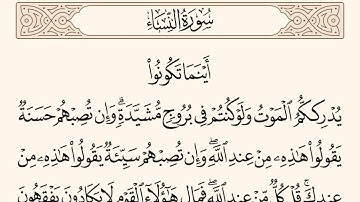 سُورَةُ النِّسَاءِ
أَيْنَمَا تَكُونُوا۟
يُدْرِككُّمُ ٱلْمَوْتُ وَلَوْ كُنتُمْ فِى بُرُوجٍ مُّشَيَّدَةٍ ۗ وَإِن تُصِبْهُمْ حَسَنَةٌ
يَقُولُوا۟ هَـٰذِهِۦ مِنْ عِندِ ٱللَّهِ ۖ وَإِن تُصِبْهُمْ سَيِّئَةٌ يَقُولُوا۟ هَـٰذِهِۦ مِنْ
عِندِكَ ۚ قُلْ كُلٌّ مِّنْ عِندِ ٱللَّهِ ۖ فَمَالِ هَـٰٓؤُلَآءِ ٱلْقَوْمِ لَا يَكَادُونَ يَفْقَهُونَ